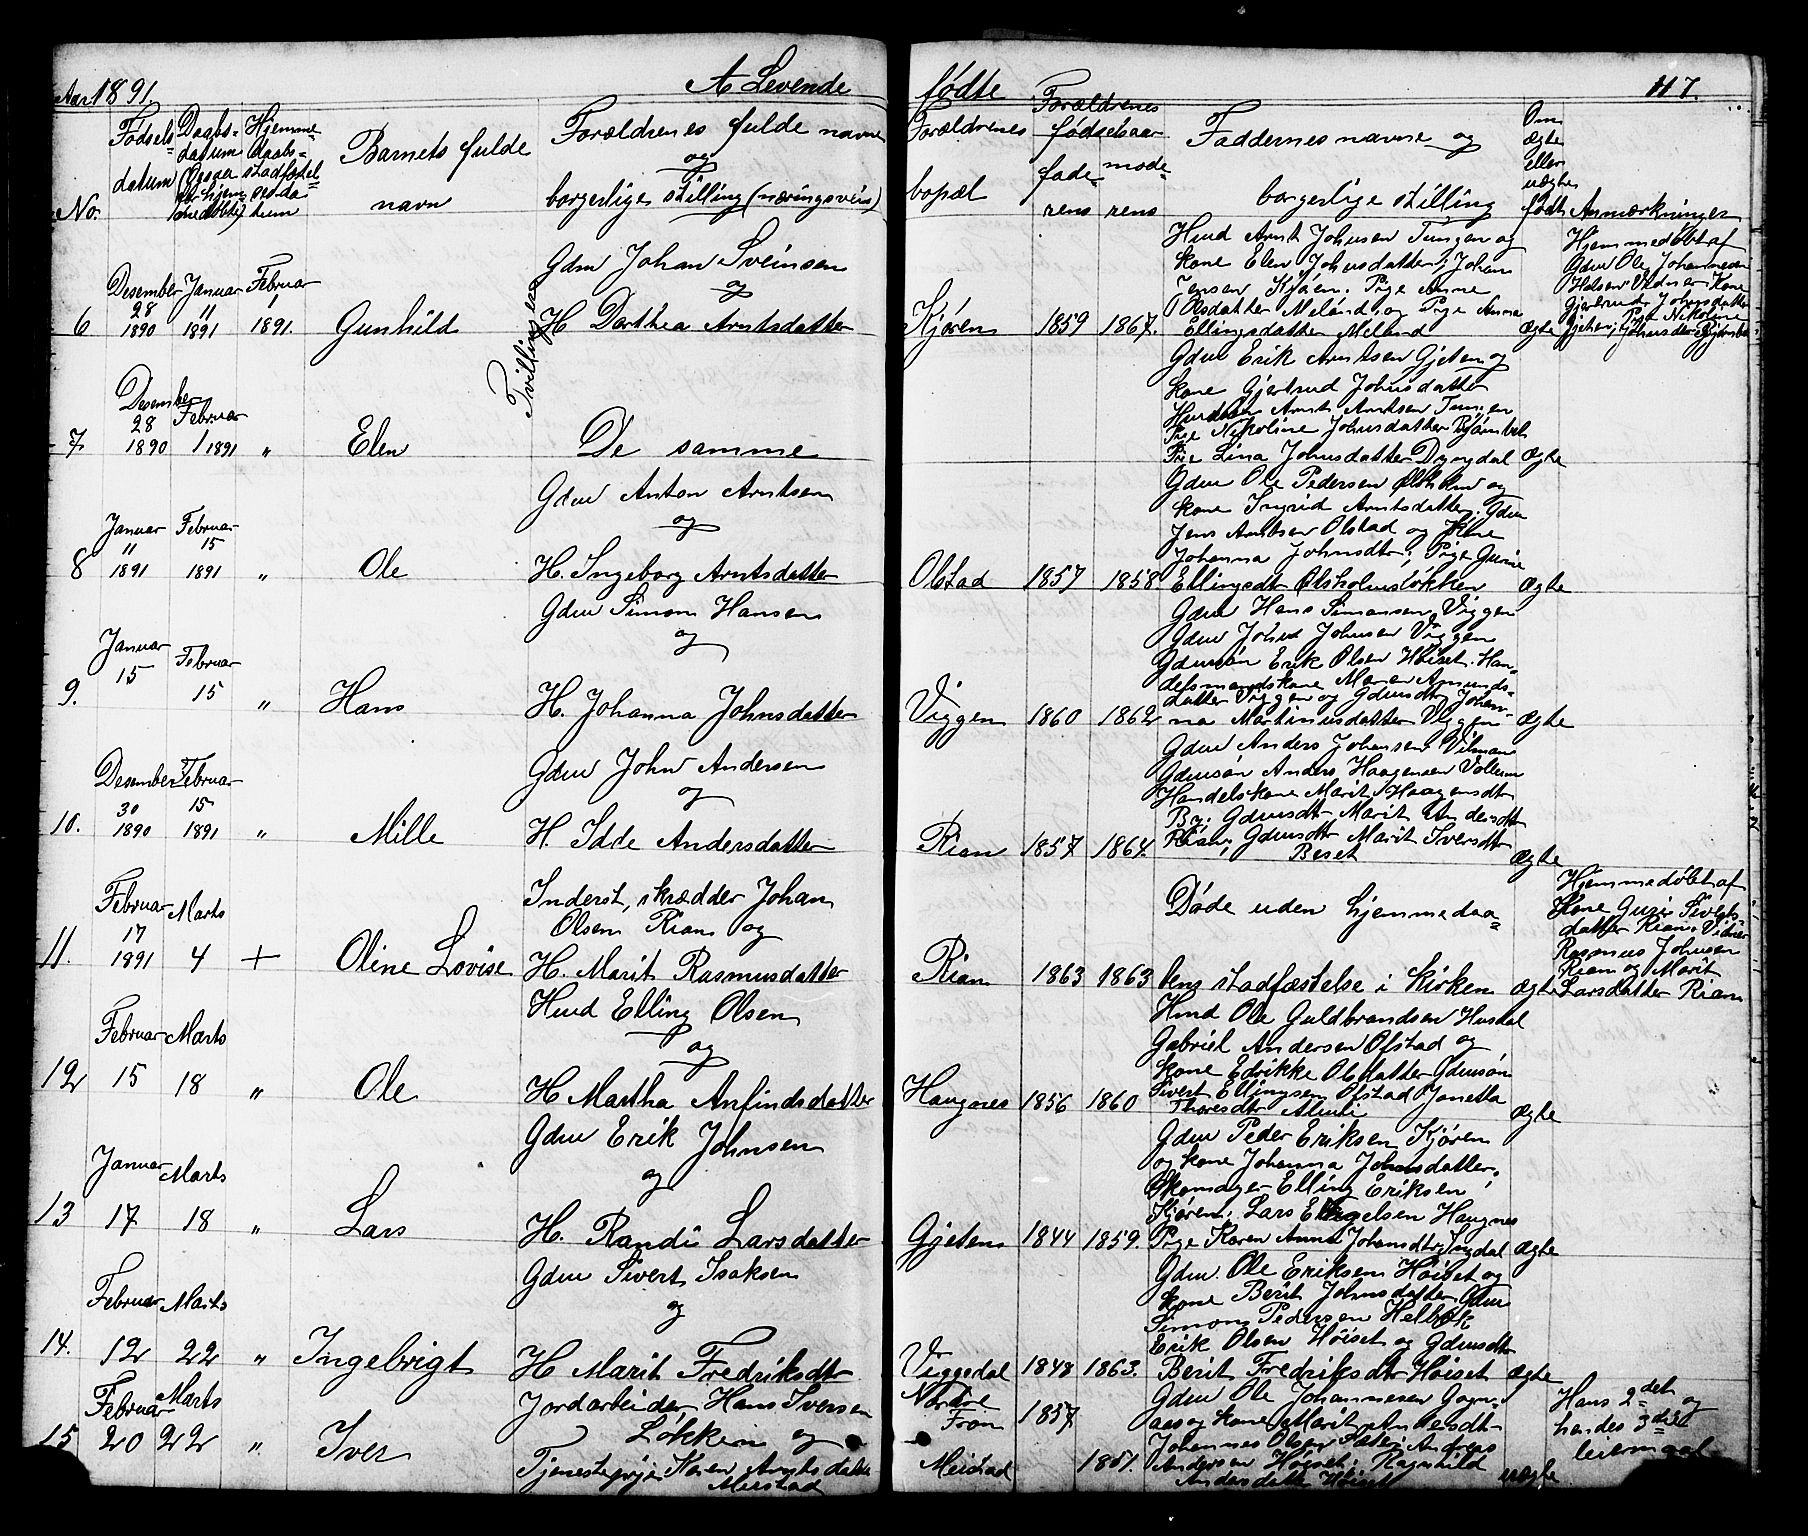 Aar 1891.
A Levende
No.
Fødsels-
datum
Daabs-
datum
(Ogsaa
for hjem-
medøbte)
Hjemme
daabs-
stadfæstel-
ses da
tum
Barnets fulde
navn
Forældrenes fulde navne
og
borgerlige stilling (næringsvei)
Desember Januar Februar
28 11 1
6 1890 1891 1891. Gunhild
Gdm Johan Sveinsen
og
H. Dorthea Arntsdatter
Tvillingsøs
Desember
28 Februar
7 1890 1 1891 " Elen De samme
Januar Februar
11 15
8 1891 1891 " Ole
Gdm Anton Arntsen
og
H. Ingeborg Arntsdatter
Januar
15 Februar
9. 15 " Hans
Gdm Simon Hansen
og
H. Johanna Johnsdatter
Desember Februar
30 15
10. 1890 1891 " Mille
Gdm John Andersen
og
H. Idde Andersdatter
Februar Marts
17
11. 1891 4 + Oline Lovise
Inderst, skrædder Johan
Olsen Rian og
H. Marit Rasmusdatter
Februar Marts
12 15 18 " Ole
Husd Elling Olsen
og
H. Martha Anfindsdatter
Januar Marts
13 17 18 " Lars
Gdm Erik Johnsen
og
H. Randi Larsdatter
Februar Marts
14. 12 22 " Ingebrigt
Gdm Sivert Isaksen
og
H. Marit Fredriksdtr
Februar Marts
15 20 22 " Iver
Jordarbeider Hans Iversen
Løkken og
Tjenestepige Karen Arntsdatter
Meistad
fødte
117.
Forældrenes
bopæl
Forældrenes
fødselsaar
fade-
rens
mode-
rens
Faddernes navne og
borgerlige stilling
Om
ægte
eller
uægte
født
Anmærkninger
Husd Arnt Johnsen Tungen og
kone Elen Johnsdatter; Johan
Jensen Kjøen. Pige Anne
Olsdatter Meland og Pige Anna
Kjøren 1859 1867. Ellingsdatter Meland ægte
Hjemmedøbt af
Gdm Ole Johannesen
Gjertrud Johnsdatter
Pige Nikoline
Gdm Erik Arntsen Gjeten og
kone Gjertrud Johnsdatter
Arnt Arntsen Tungen
Pige Nikoline Johnsdatter Bjørnbet
Pige Lina Johnsdatter Dyrdal ægte
Gdm Ole Pedersen Ølsholm og
kone Ingrid Arntsdatter. Gdm
Jens Arntsen Olstad og kone
Johanna Johnsdtr; Pige Gurine
Olstad 1857 1858 Ellingsdtr Ølsholmsløkken ægte
Gdm Hans Simonsen Viggen
Gdm John Johnsen Viggen
Gdmsøn Erik Olsen Høiset. Han-
delsmandskone Maren Amunds-
datter Viggen og Gdmsdtr Johan-
Viggen 1860 1862 na Martinusdatter Viggen ægte
Gdm Anders Johansen Vilman
Gdmsøn Anders Haagensen Vollum
Handelskone Marit Haagensdtr
By; Gdmsdtr Marit Andersdtr
Rian 1857 1864. Rian; Gdmsdtr Marit Iversdtr
Beset ægte
Døde uden hjemmedaa-
Rian 1863 1863 bens stadfæstelse i kirken ægte
Hjemmedøbt af
Kone Guri Siverts-
datter Rian. Vidner
Rasmus Johnsen
Rian og Marit
Larsdatter Rian
Husd Ole Guldbrandsen Husdal
Gabriel Andersen Ofstad og
kone Edrikke Olsdatter Gdmsøn
Sivert Ellingsen Ofstad Janetta
Haugnes 1856 1860 Thoresdtr ægte
Gdm Peder Eriksen Kjøren
og kone Johanna Johnsdatter;
Skomager Elling Eriksen
Kjøren; Lars Haugnes
Gjeten 1844 1859. Pige Karen Anna Johansdtr Ingdal ægte
Gdm. Ole Eriksen Høiset og
kone Berit Johnsdatter Gdm
Simon Pedersen Helbæk
Erik Olsen Høiset og Gdmsdtr
Viggedal 1848 1863. Berit Fredriksdtr Høiset ægte
Nordre
Fron 1857
Meistad 1851.
Gdm Ole Johannesen Gagn-
aas og kone Marit Andersdtr
Johannes Olsen Andreas
Andersen Høiset; Ragnhild
Andersdatter Høiset uægte
Hans 2det og
hendes 3die
leiermaal